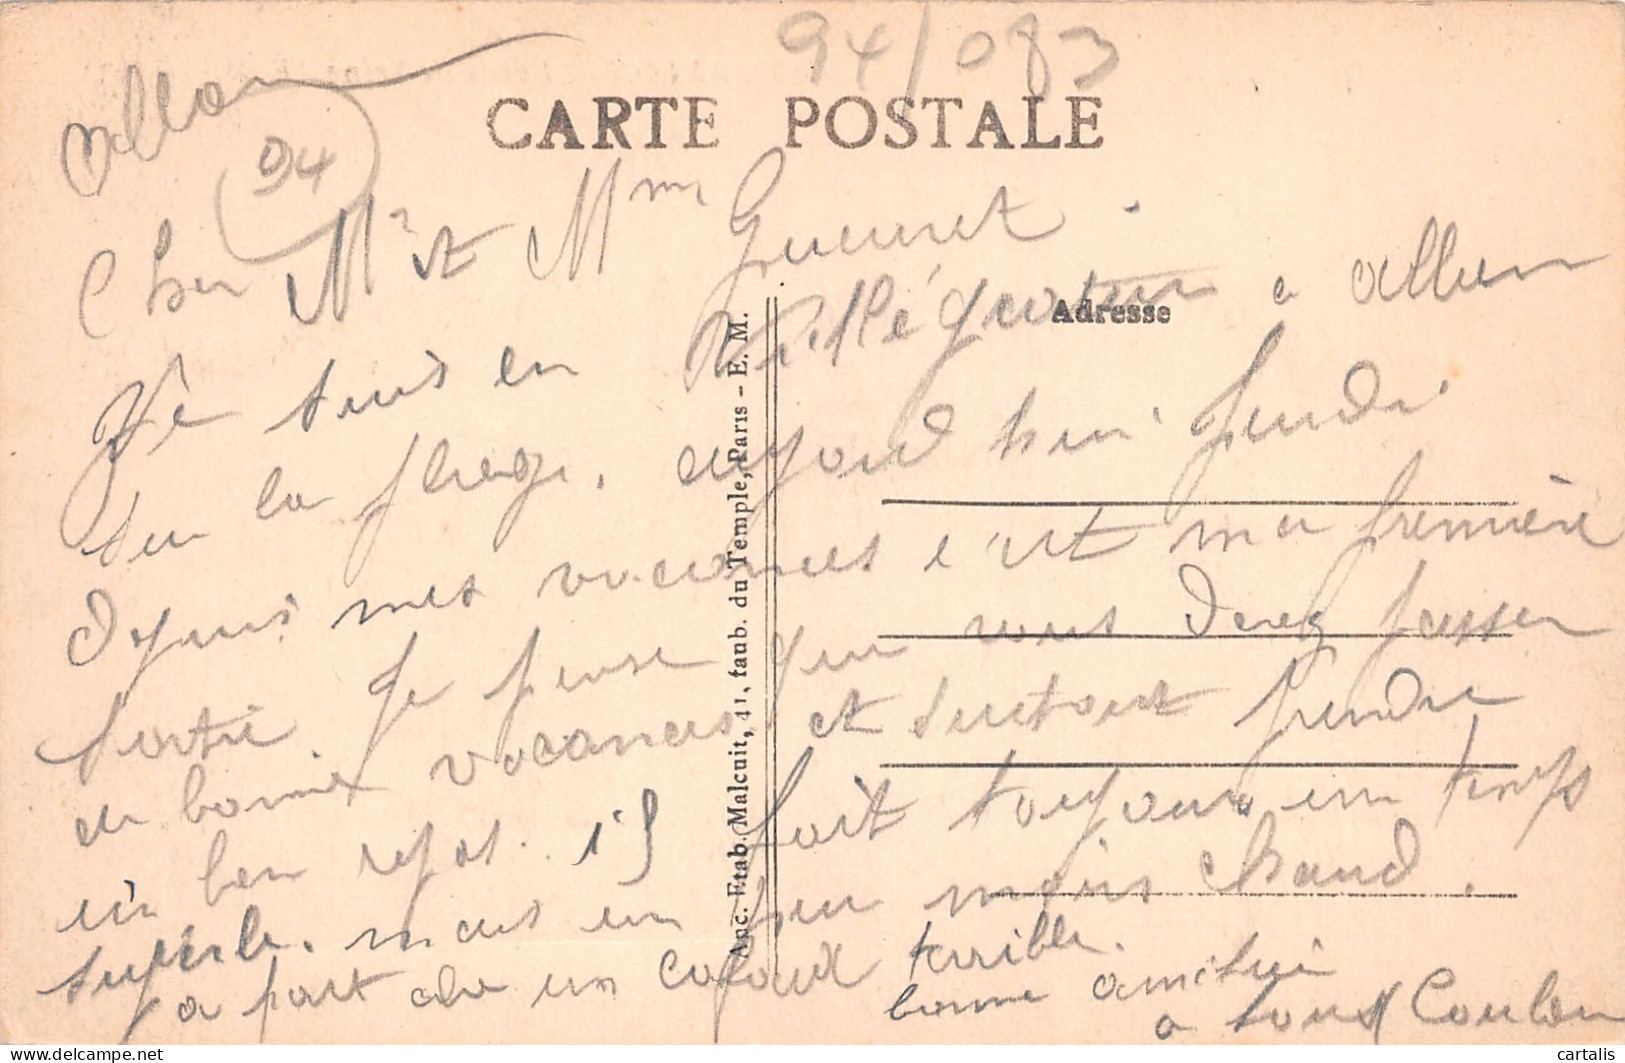 94/083
CARTE POSTALE
94
Cher Mr et Mme Guenet.
Je suis en Villégiature à
sur la plage, aujourd'hui jeudi
depuis mes vacances c'est ma première
sortie. Je pense que vous devez passer
de bonnes vacances et surtout prendre
un bon repos. il fait toujours un temps
superbe. mais un peu moins chaud.
à part cela un terrible.
bonne amitié
a tous Coulon
Adresse
Anc. Etab. Malcuit, 41, faub. du Temple, Paris - E. M.
cartalis